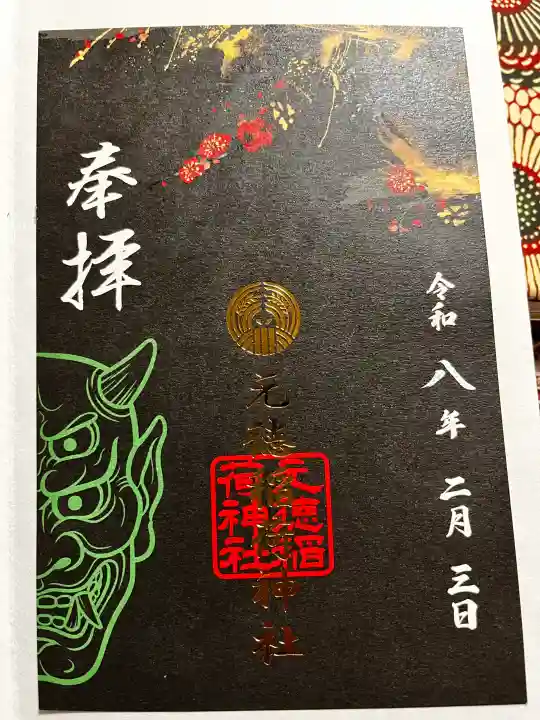 奉拝
元徳稲荷神社
元徳稲荷神社
令和八年二月三日